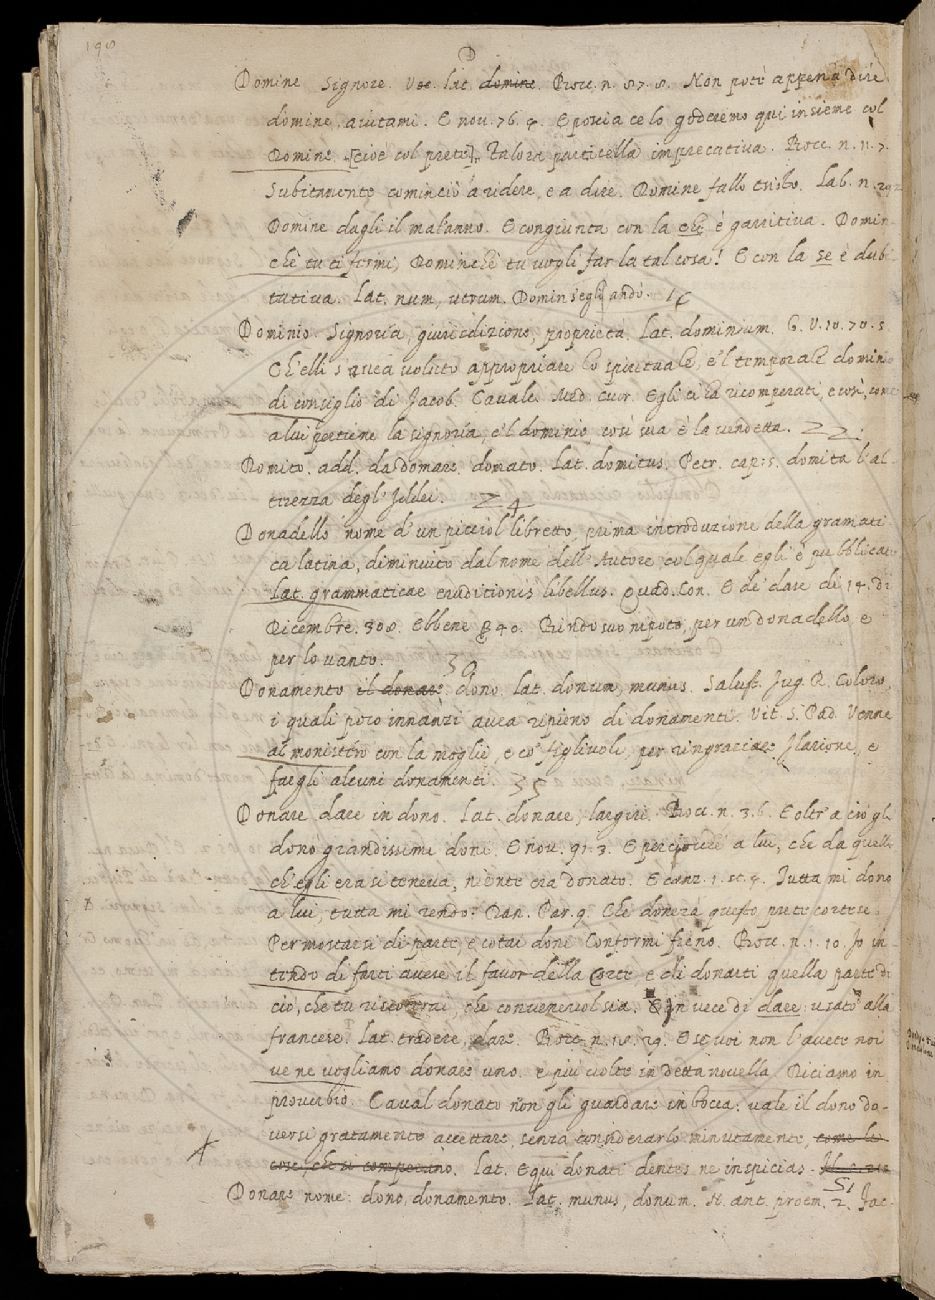 198
D
Domine Signore. Voc. lat. domine. Bocc. n. 87. 8. Non potè appena dire
domine, aiutami. E nov. 76. 4. E poscia ce lo goderemo qui insieme col
Domine [cioè col prete]. Talora particella imprecativa. Bocc. n. 11. 7.
Subitamente cominciò a ridere, e a dire. Domine fallo tristo. Lab. n. 292
Domine dagli il malanno. E congiunta con la chè è garritiva. Domin-
chè tu ti fermi, Dominechè tu vogli far la tal cosa! E con la se è dubi-
tativa. Lat. num, utrum. Domin segli andò. 16
Dominio. Signoria, giuridizione, proprietà. Lat. dominium. G. V. 10. 70. 5
Ch'elli s'avea voluto appropriare lo spirituale, e'l temporale dominio
di consiglio di Jacob. Cavalc. Med. cuor. Egli ci ha ricomperati, e così, come
a lui pertiene la signoria, e'l dominio, così sua è la vendetta. 22
Domito. add. da Domare, domato. Lat. domitus. Petr. cap. 5. domita l'al-
terezza degl' Idei. 24
Donadello nome d'un picciol libretto, prima introduzione della gramati-
ca latina, diminuito dal nome dell'Autore col quale egli è pubblicato
Lat. grammaticae eruditionis libellus. Quad. Con. E di dare di 14. di
Dicembre. 308. Ebbene 40. Bindo suo nipote, per un donadello, e
per lo vanto. 30
Donamento il donare dono. Lat. donum, munus. Salust. Jug. R. Coloro,
i quali poco innanzi avea ripieno di donamenti. Vit. S. Pad. Venne
al monistero con la moglie, e co' figliuoli, per ringraziare Ilarione, e
fargli alcuni donamenti. 35
Donare dare in dono. Lat. donare, largiri. Bocc. n. 3. 6. E oltr'a ciò gli
donò grandissimi doni. E nov. 91. 3. E perciocchè a lui, che da quelli
ch'egli era si teneva, niente era donato. E canz. 1. st. 4. Tutta mi dono
a lui, tutta mi rendo. Dan. Par. 9. Che donerà questo prete cortese
Per mostrarsi di parte, e cotai doni Conformi fieno. Bocc. n. 1. 10. Io in-
tendo di farti avere il favor della Corte e di donarti quella parte di
ciò, che tu riceverai, che convenevol sia. E in vece di dare: usato alla
francese. Lat. tradere, dare. Bocc. n. 18. 29. E se voi non l'avete noi
ve ne vogliamo donare uno. e più volte in detta novella Diciamo in
proverbio. Caval donato non gli guardare in bocca: vale il dono do-
versi gratamente accettare, senza considerarlo minutamente, come le
cose, che si comperano. Lat. Equi donati dentes ne inspicias.
51
Donare nome: dono, donamento. Lat. munus, donum. N. ant. proem. 2. Fac-